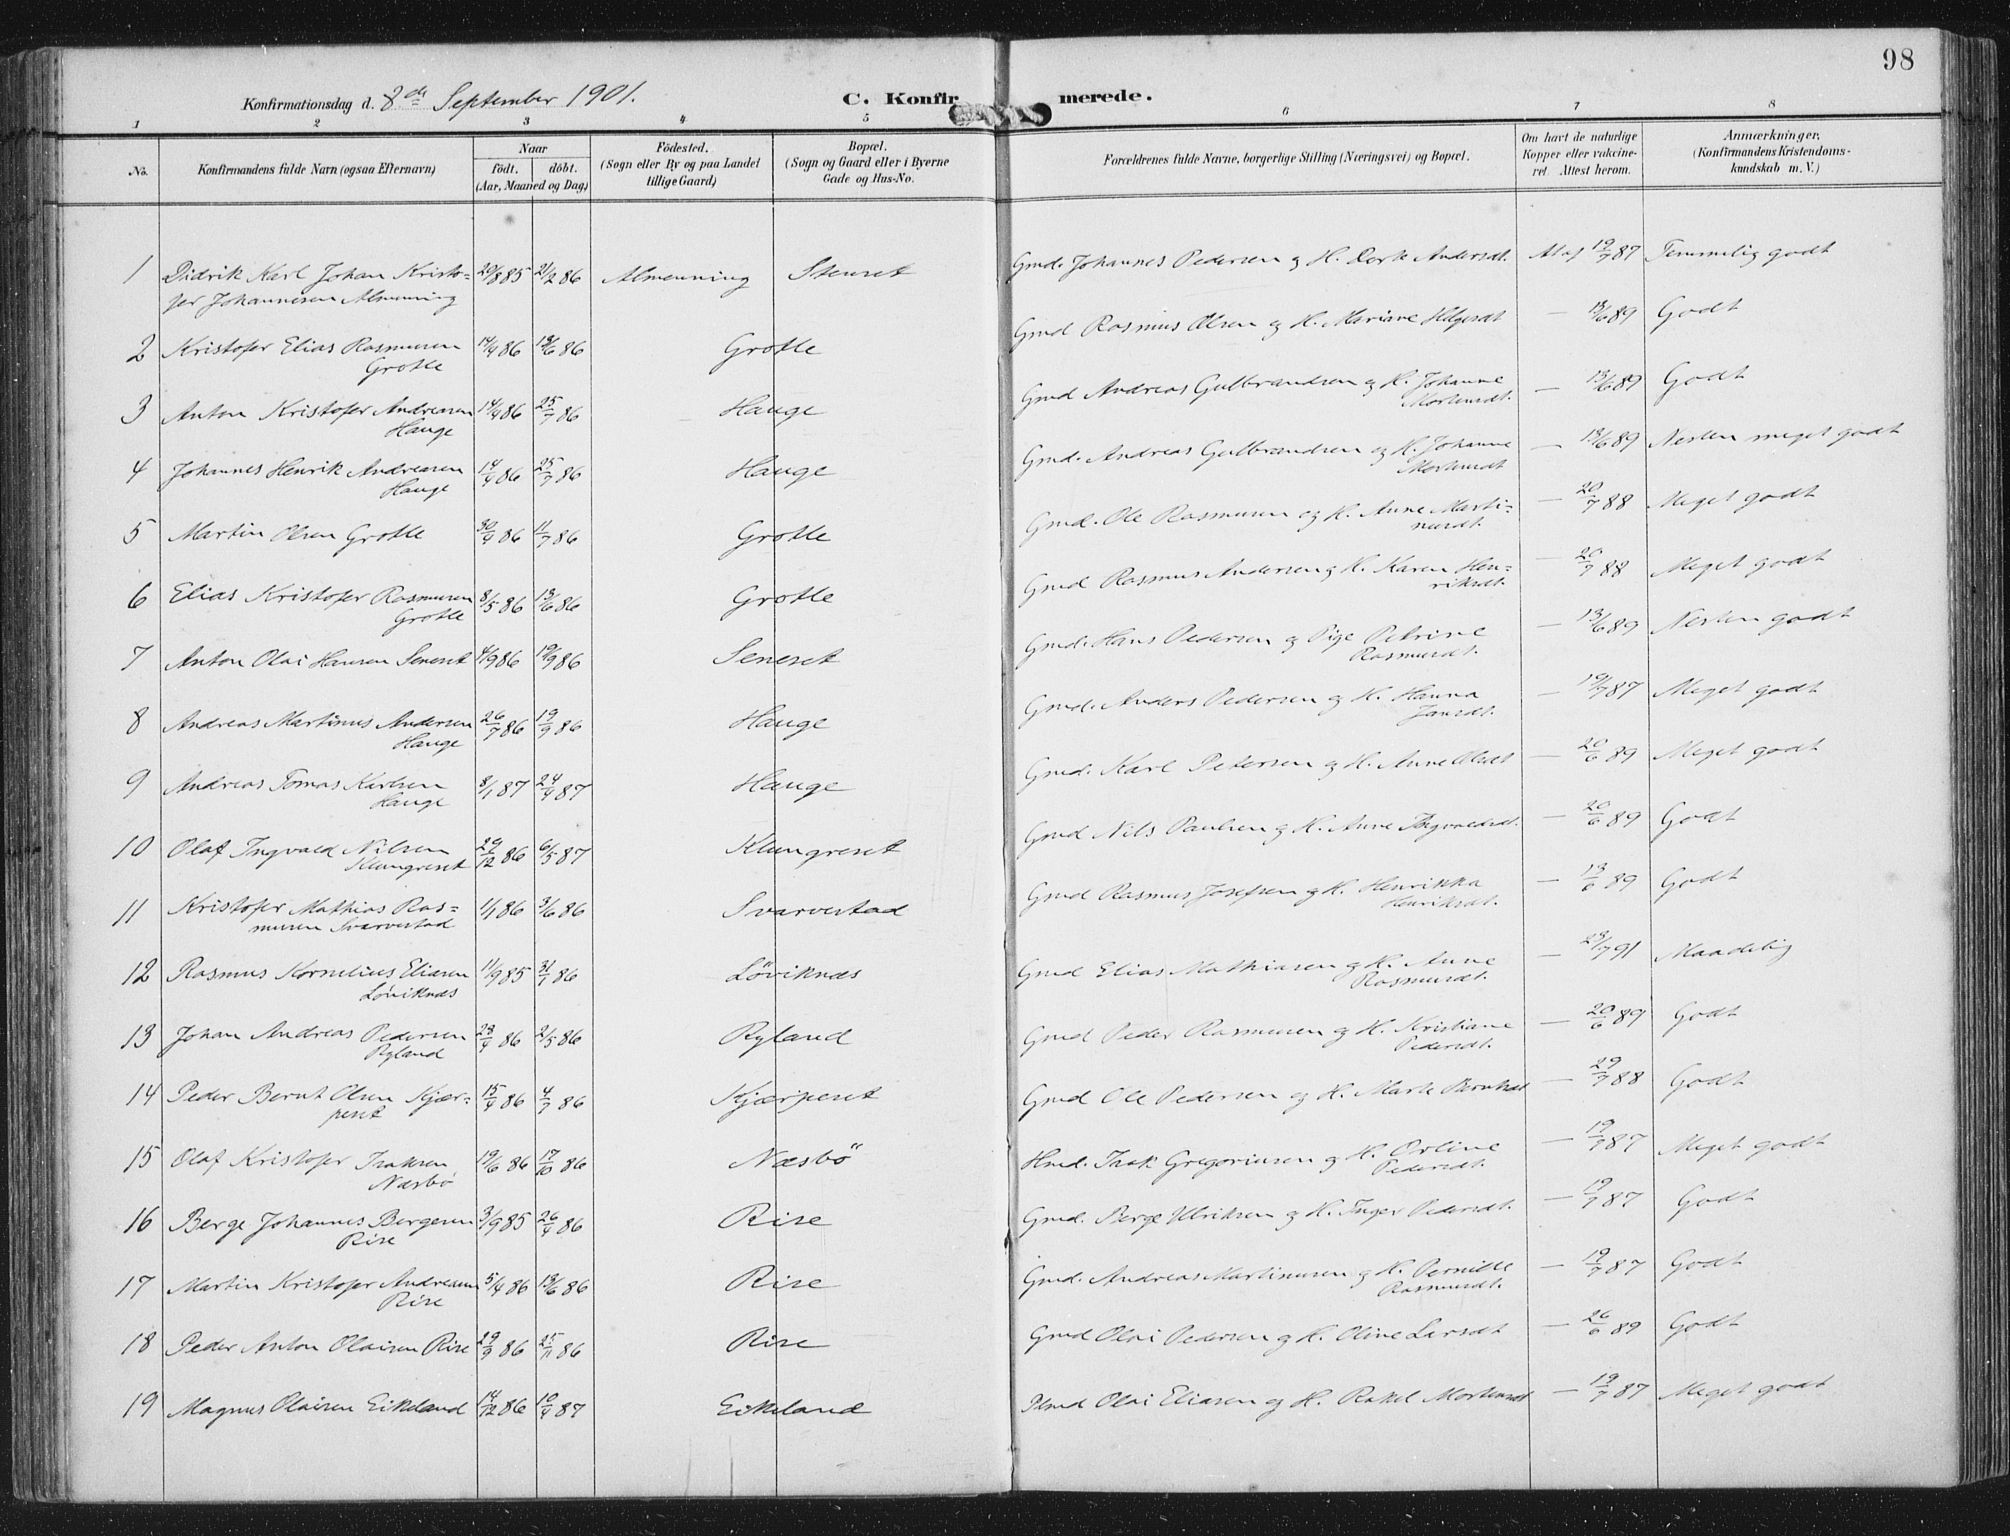 98
Konfirmationsdag d. 8de September 1901.
C. Konfirmerede.
1 2 3 4 5 6 7 8
No.
Konfirmandens fulde Navn (ogsaa Efternavn)
Naar
födt. döbt.
(Aar, Maaned og Dag)
Födested.
(Sogn eller By og paa Landet
tillige Gaard)
Bopæl.
(Sogn og Gaard eller i Byerne
Gade og Hus-No.
Forældrenes fulde Navne, borgerlige Stilling (Næringsvei) og Bopæl.
Om havt de naturlige
Kopper eller vakcine-
ret. Attest herom.
Anmærkninger.
(Konfirmandens Kristendoms-
kundskab m. V.)
1 Didrik Karl Johan Kristo- 29/8 85 21/2 86 Almenning Stenset Gmd. Johannes Pedersen og H. Andersdt. At af 19/7 87 Temmelig godt
fer Johannesen Almenning
2 Kristofer Elias Rasmusen 14/4 86 13/6 86 Grotle Gmd Rasmus Olsen og H. Mariane Helgesdt — 13/6 89 Godt
Grotle
3 Anton Kristofer Andreasen 14/4 86 25/7 86 Hauge Gmd Andreas Gulbrandsen og H. Johanne — 13/6 89 Godt
Hauge Mortensdt.
4 Johannes Henrik Andreasen 14/4 86 25/7 86 Hauge Gmd. Andreas Gulbrandsen og H. Johanne — 13/6 89 Nesten meget godt
Hauge Mortensdt
5 Martin Olsen Grotle 30/4 86 11/7 86 Grotle Gmd. Ole Rasmusen og H. Anne Marti- — 20/7 88 Meget godt
nusdt.
6 Elias Kristofer Rasmusen 8/5 86 13/6 86 Grotle Gmd Rasmus Andersen og H. Karen Hen- — 20/7 88 Meget godt
Grotle riksdt.
7 Anton Olai Hansen Seneset 4/9 86 19/9 86 Seneset Gmd. Hans Pedersen og Pige Petrine — 13/6 89 Nesten godt
Rasmusdt.
8 Andreas Martinus Andersen 26/7 86 19/9 86 Hauge Gmd. Anders Pedersen og H. Hanna — 19/7 87 Meget godt
Hauge Jansdt.
9 Andreas Tomas Karlsen 8/1 87 24/4 87 Hauge Gmd. Karl Petersen og H. Anne Olsdt — 20/6 89 Meget godt
Hauge
10 Olaf Ingvald Nilsen 29/12 86 6/5 87 Klungreset Gmd Nils Paulsen og H. Anne — 20/6 89 Godt
Klungreset
11 Kristofer Mathias Ras- 1/1 86 3/6 86 Svarvestad Gmd Rasmus Josefsen og H. Henrikka — 13/6 89 Godt
musen Svarvestad Henriksdt.
12 Rasmus Kornelius Eliasen 11/9 85 31/1 86 Löviknæs Gmd Elias Mathiasen og H. Anne — 23/7 91 Maadelig
Löviknæs Rasmusdt.
13 Johan Andreas Pedersen 23/4 86 2/5 86 Ryland Gmd Peder Rasmusen og H. Kristiane — 20/6 89 Godt
Ryland Pedersdt.
14 Peder Bernt Olsen Kjær- 15/4 86 4/7 86 Kjærpeset Gmd Ole Pedersen og H. Marte — 29/7 88 Godt
peset
15 Olaf Kristofer Isaksen 19/6 86 17/10 86 Næsbö Hmd. Isak Gregoriusen og H. Orline — 19/7 87 Meget godt
Næsbö Pedersdt.
16 Berge Johannes Bergesen 3/9 85 26/4 86 Rise Gmd. Berge Ulriksen og H. Inger Pedersdt. — 19/7 87 Godt
Rise
17 Martin Kristofer Andreasen 5/4 86 13/6 86 Rise Gmd. Andreas Martinusen og H. Pernille — 19/7 87 Godt
Rise Rasmusdt.
18 Peder Anton Olaisen Rise 29/9 86 25/11 86 Rise Gmd Olai Pedersen og H. Oline Larsdt — 26/6 89 Godt
19 Magnus Olaisen Eikeland 14/12 86 10/4 87 Eikeland Olai Eliasen og H. Rakel Mortensdt — 19/7 87 Meget godt